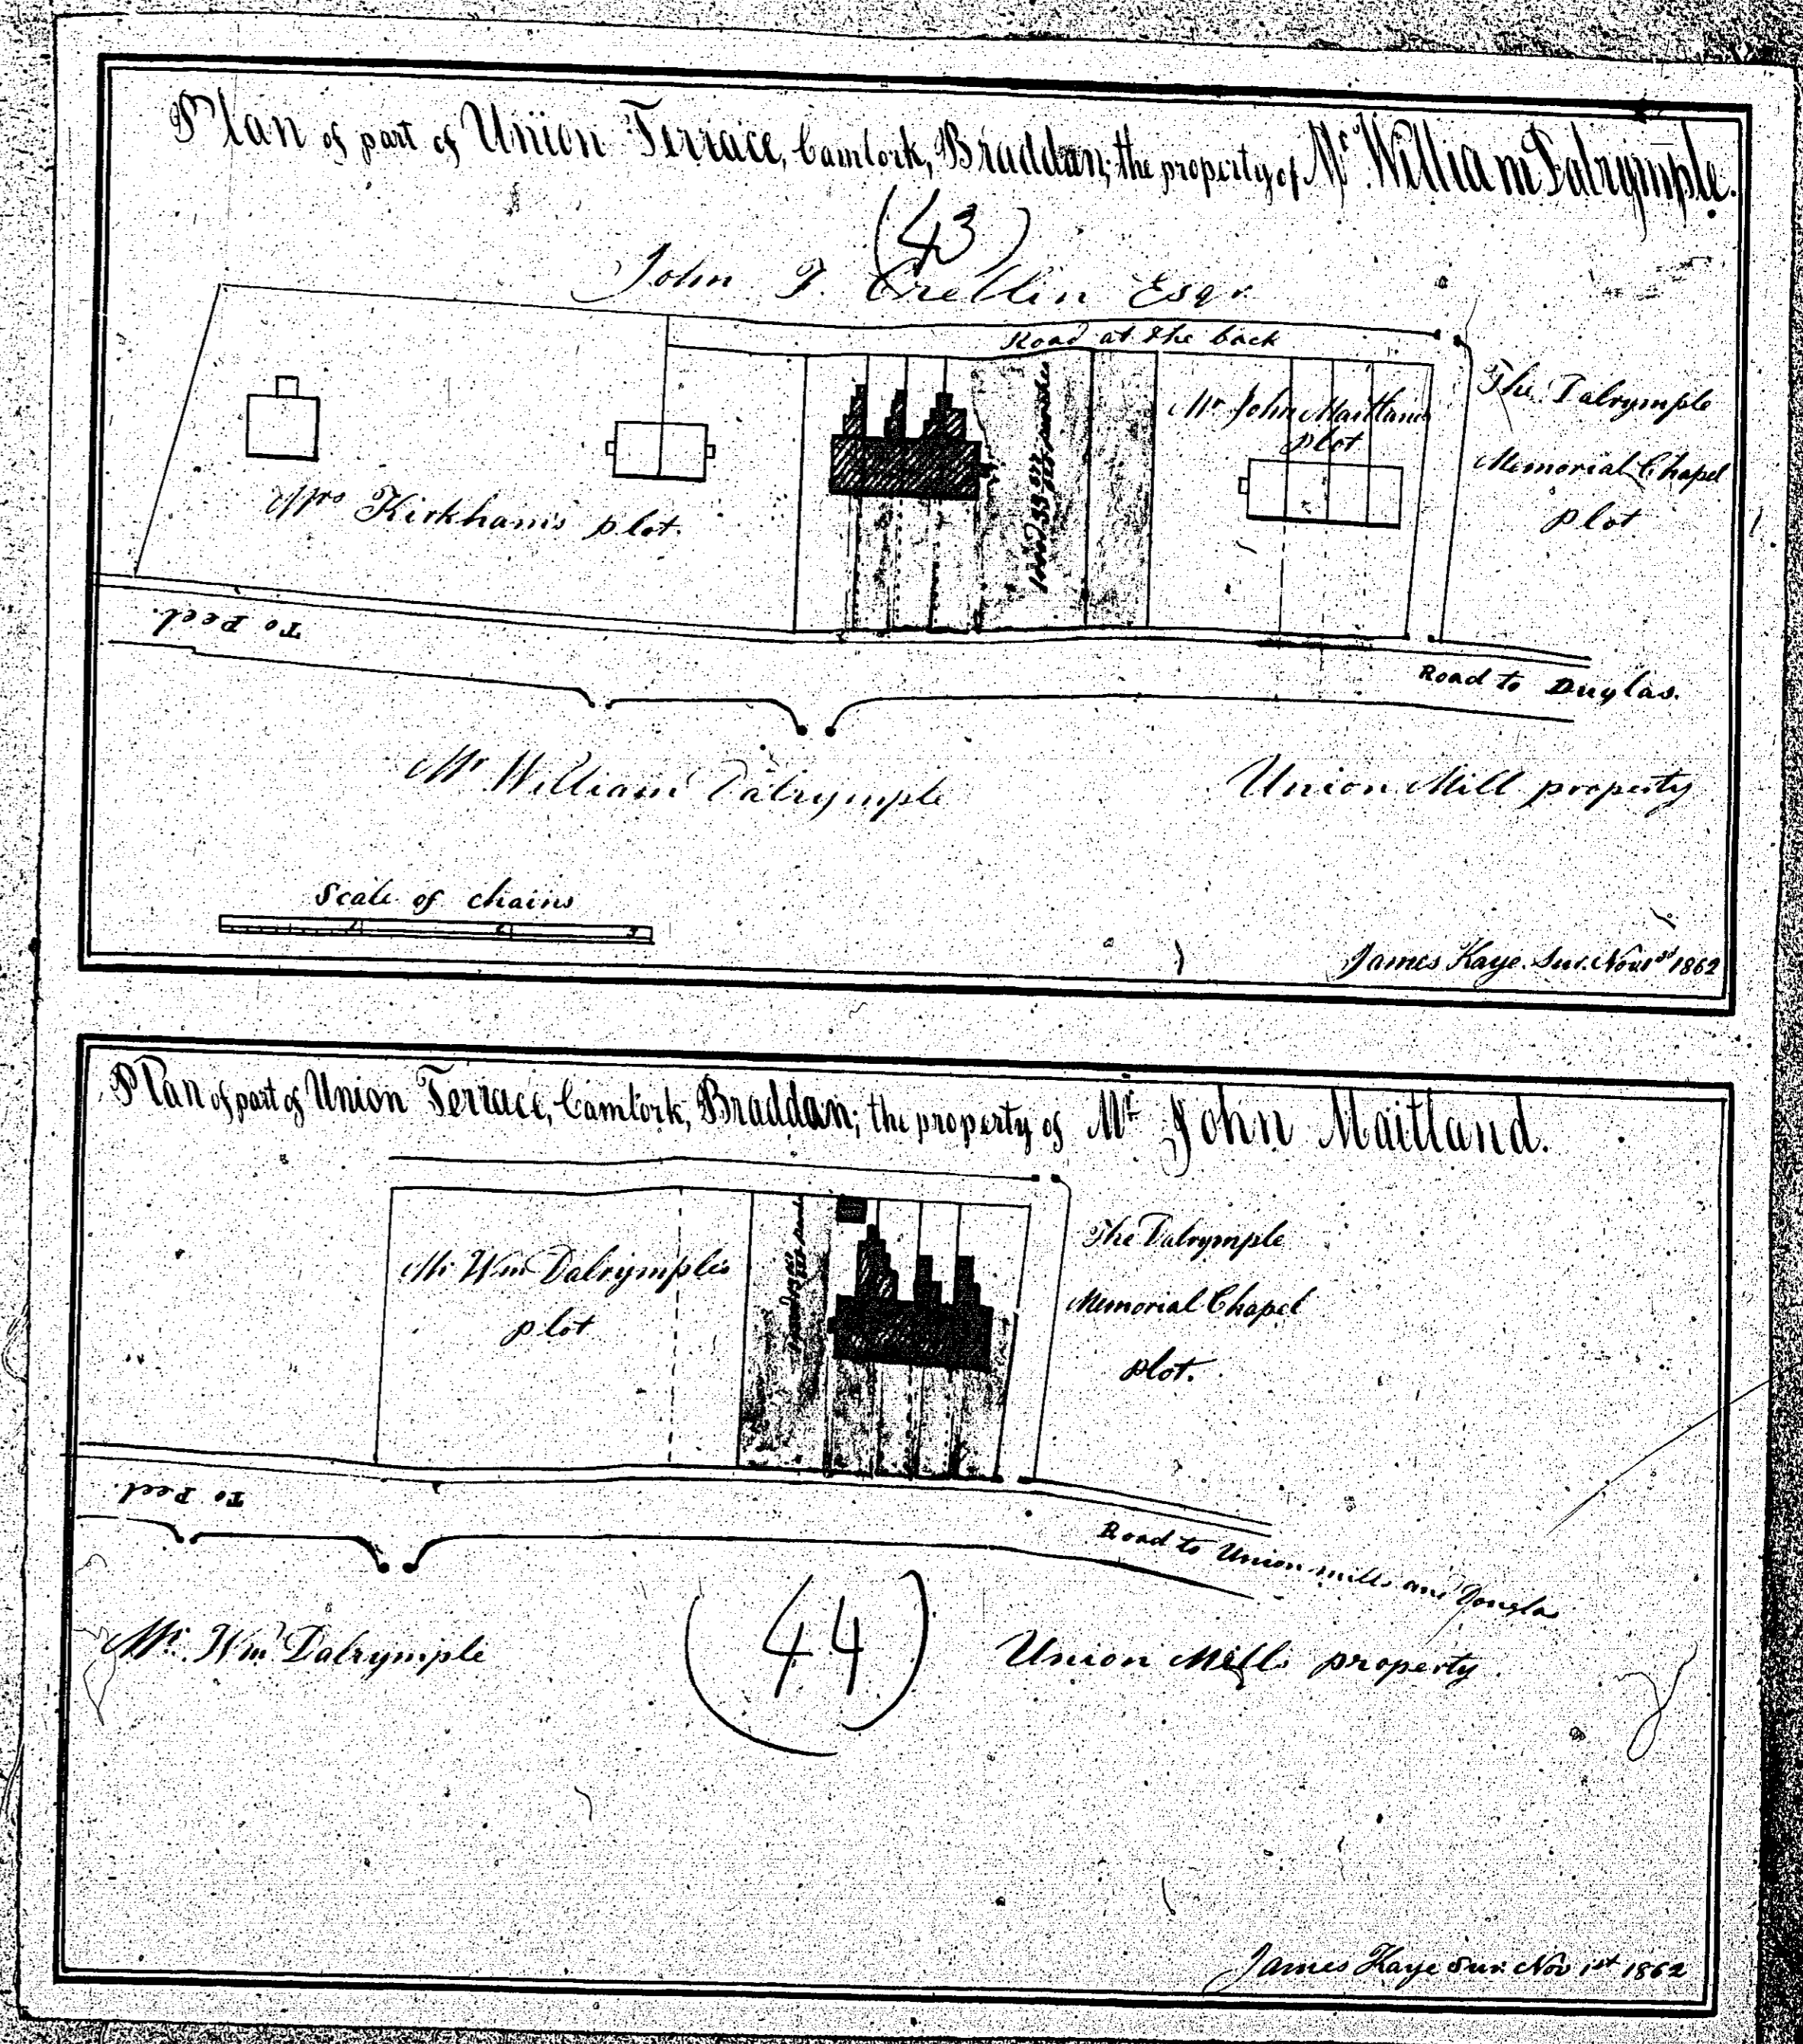 Plan of part of Union Terrace, Camlork, Braddan; the property of Mr. William Dalrymple.
(43)
John F. Crellin Esqr
Road at the back
Mr John Maitland
plot
The Dalrymple
Memorial Chapel
plot
Mrs Kirkham's plot.
To Peel.
Road to Duglas.
Mr William Dalrymple
Union Mill property
Scale of chains
1 2 3
James Kaye. Sur. Nov 1st 1862
Plan of part of Union Terrace, Camlork, Braddan; the property of Mr. John Maitland.
Mr Wm Dalrymple's
plot
The Dalrymple
Memorial Chapel
plot.
To Peel.
Road to Union mills and Douglas
Mr. Wm Dalrymple
(44)
Union Mills property
James Kaye Sur. Nov 1st 1862